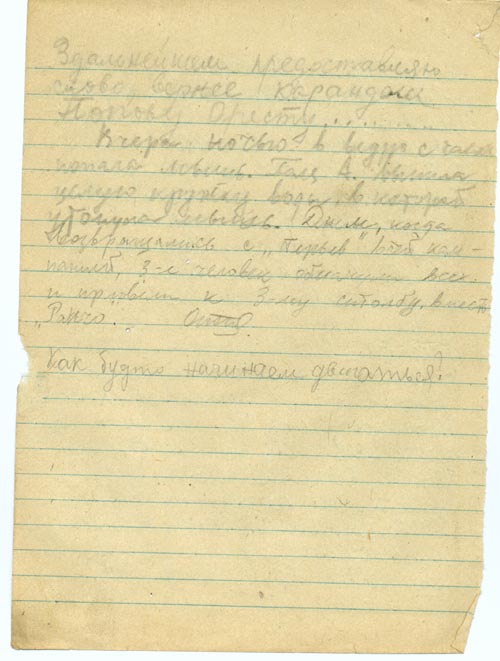 Здальнейшем предоставляю
слово, вернее карандаш
Попову Оресту........
Вчера ночью в ведро с чаем
попала мышь. Галя А. выпила
целую кружку воды, в которой
утонула мышь. Днем, когда
возвращались с "Перьев" всей ком-
панией, 3-е человек обогнали всех
и пришли к 3-му столбу, вместо
"Ранчо".
Как будто начинаем двигаться!